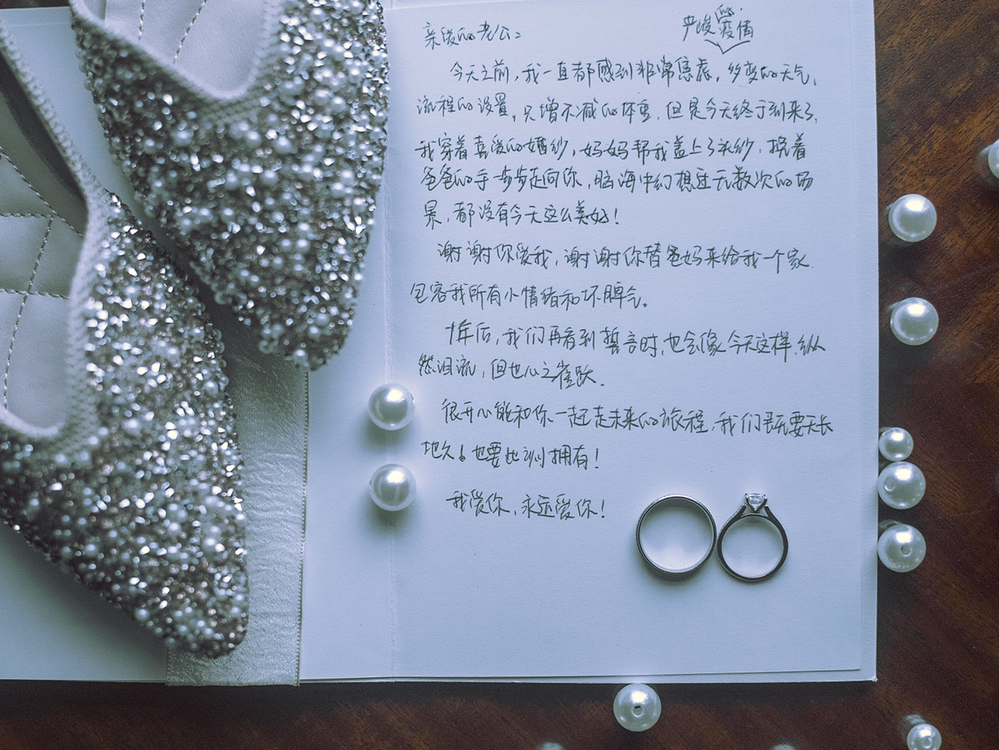 亲爱的老公:
今天之前,我一直都感到非常焦虑,多变的天气、
流程的设置,只增不减的体重,但是今天终于到来了,
我穿着喜爱的婚纱,妈妈帮我盖上了头纱,挽着
爸爸的手一步步走向你,脑海中幻想过无数次的场
景,都没有今天这么美好!
谢谢你爱我,谢谢你替爸妈来给我一个家.
包容我所有小情绪和坏脾气。
十年后,我们再看到誓言时,也会像今天这样,纵
然泪流,但也心之雀跃.
很开心能和你一起走未来的旅程,我们既要天长
地久!也要拥有!
我爱你,永远爱你!